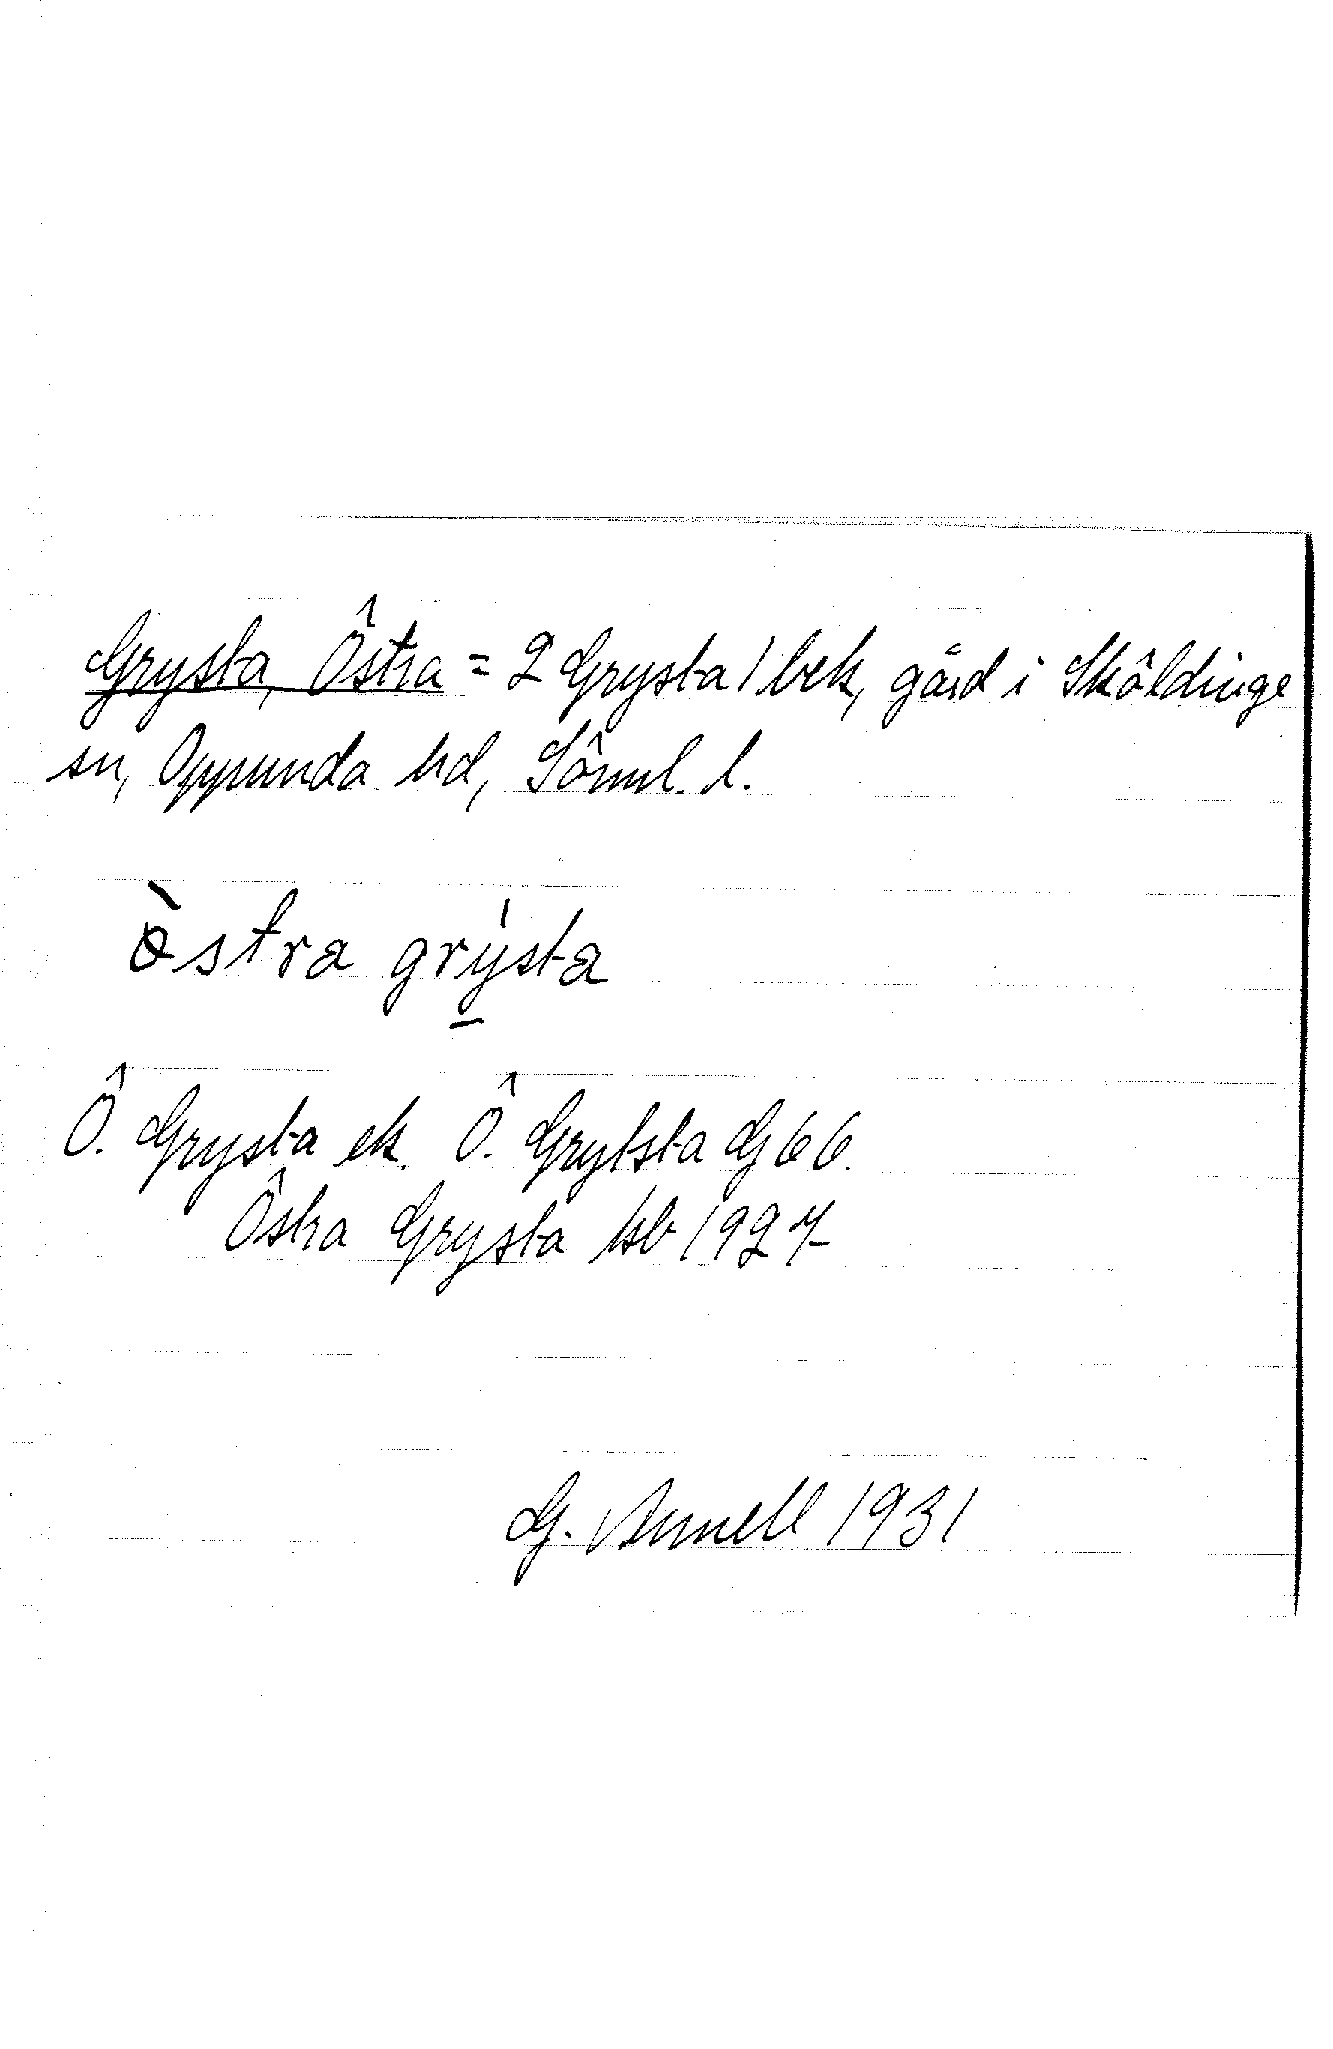 Grysta, Östra = 2 Grysta 1 bek, gård i Sköldinge
sn, Oppunda hd, Söml. l.
òstra grýsta
Ö. Grysta ek. Ö. Grytsta Gj 66.
Östra Grysta Jsb 1927
G. Annell 1931